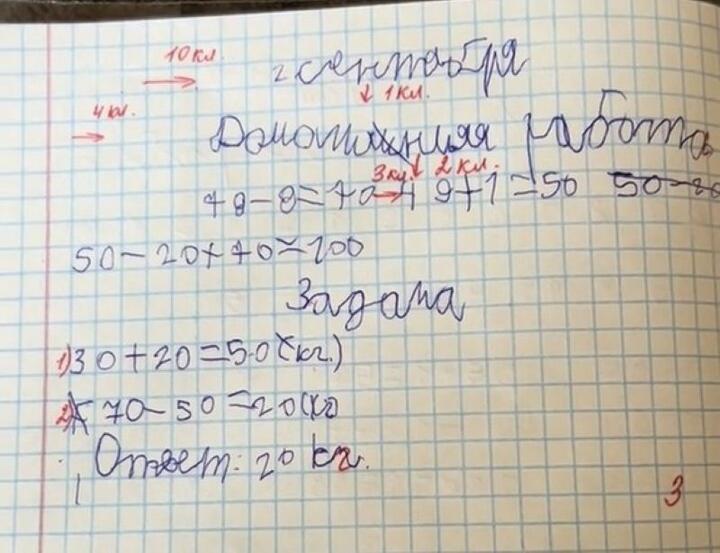 10 кл.
2 сентября
4 кл.
1 кл.
Домашняя работа
3 кл. 2 кл.
78-8=70 49+1=50 50-20
50-20+70=100
Задача
1) 30+20=50 (кг.)
2) 70-50=20 (кг
Ответ: 20 кг.
3